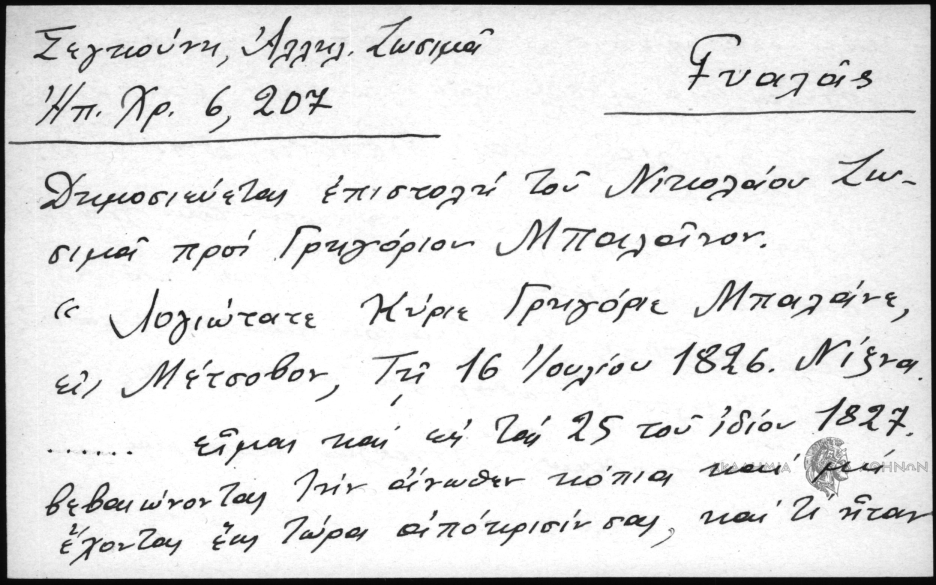 Σεγκούνη, Ἀλληλ. Ζωσιμᾶ
Γυαλᾶς
Ἠπ. Χρ. 6, 207
Δημοσιεύεται ἐπιστολή τοῦ Νικολάου Ζω-
σιμᾶ πρός Γρηγόριον Μπαλαῖνον.
“ Λογιώτατε Κύριε Γρηγόριε Μπαλάνε,
εἰς Μέτσοβον, Τῇ 16 Ἰουλίου 1826. Νίζνα.
...... εἶμαι καί εἰς τάς 25 τοῦ ἰδίου 1827.
βεβαιώνοντας τήν ἄνωθεν κόπια καί μή
ἔχοντας ἕως τώρα ἀπόκρισίν σας, καί τί ἦταν
ΑΚΑΔΗΜΙΑ ΑΘΗΝΩΝ